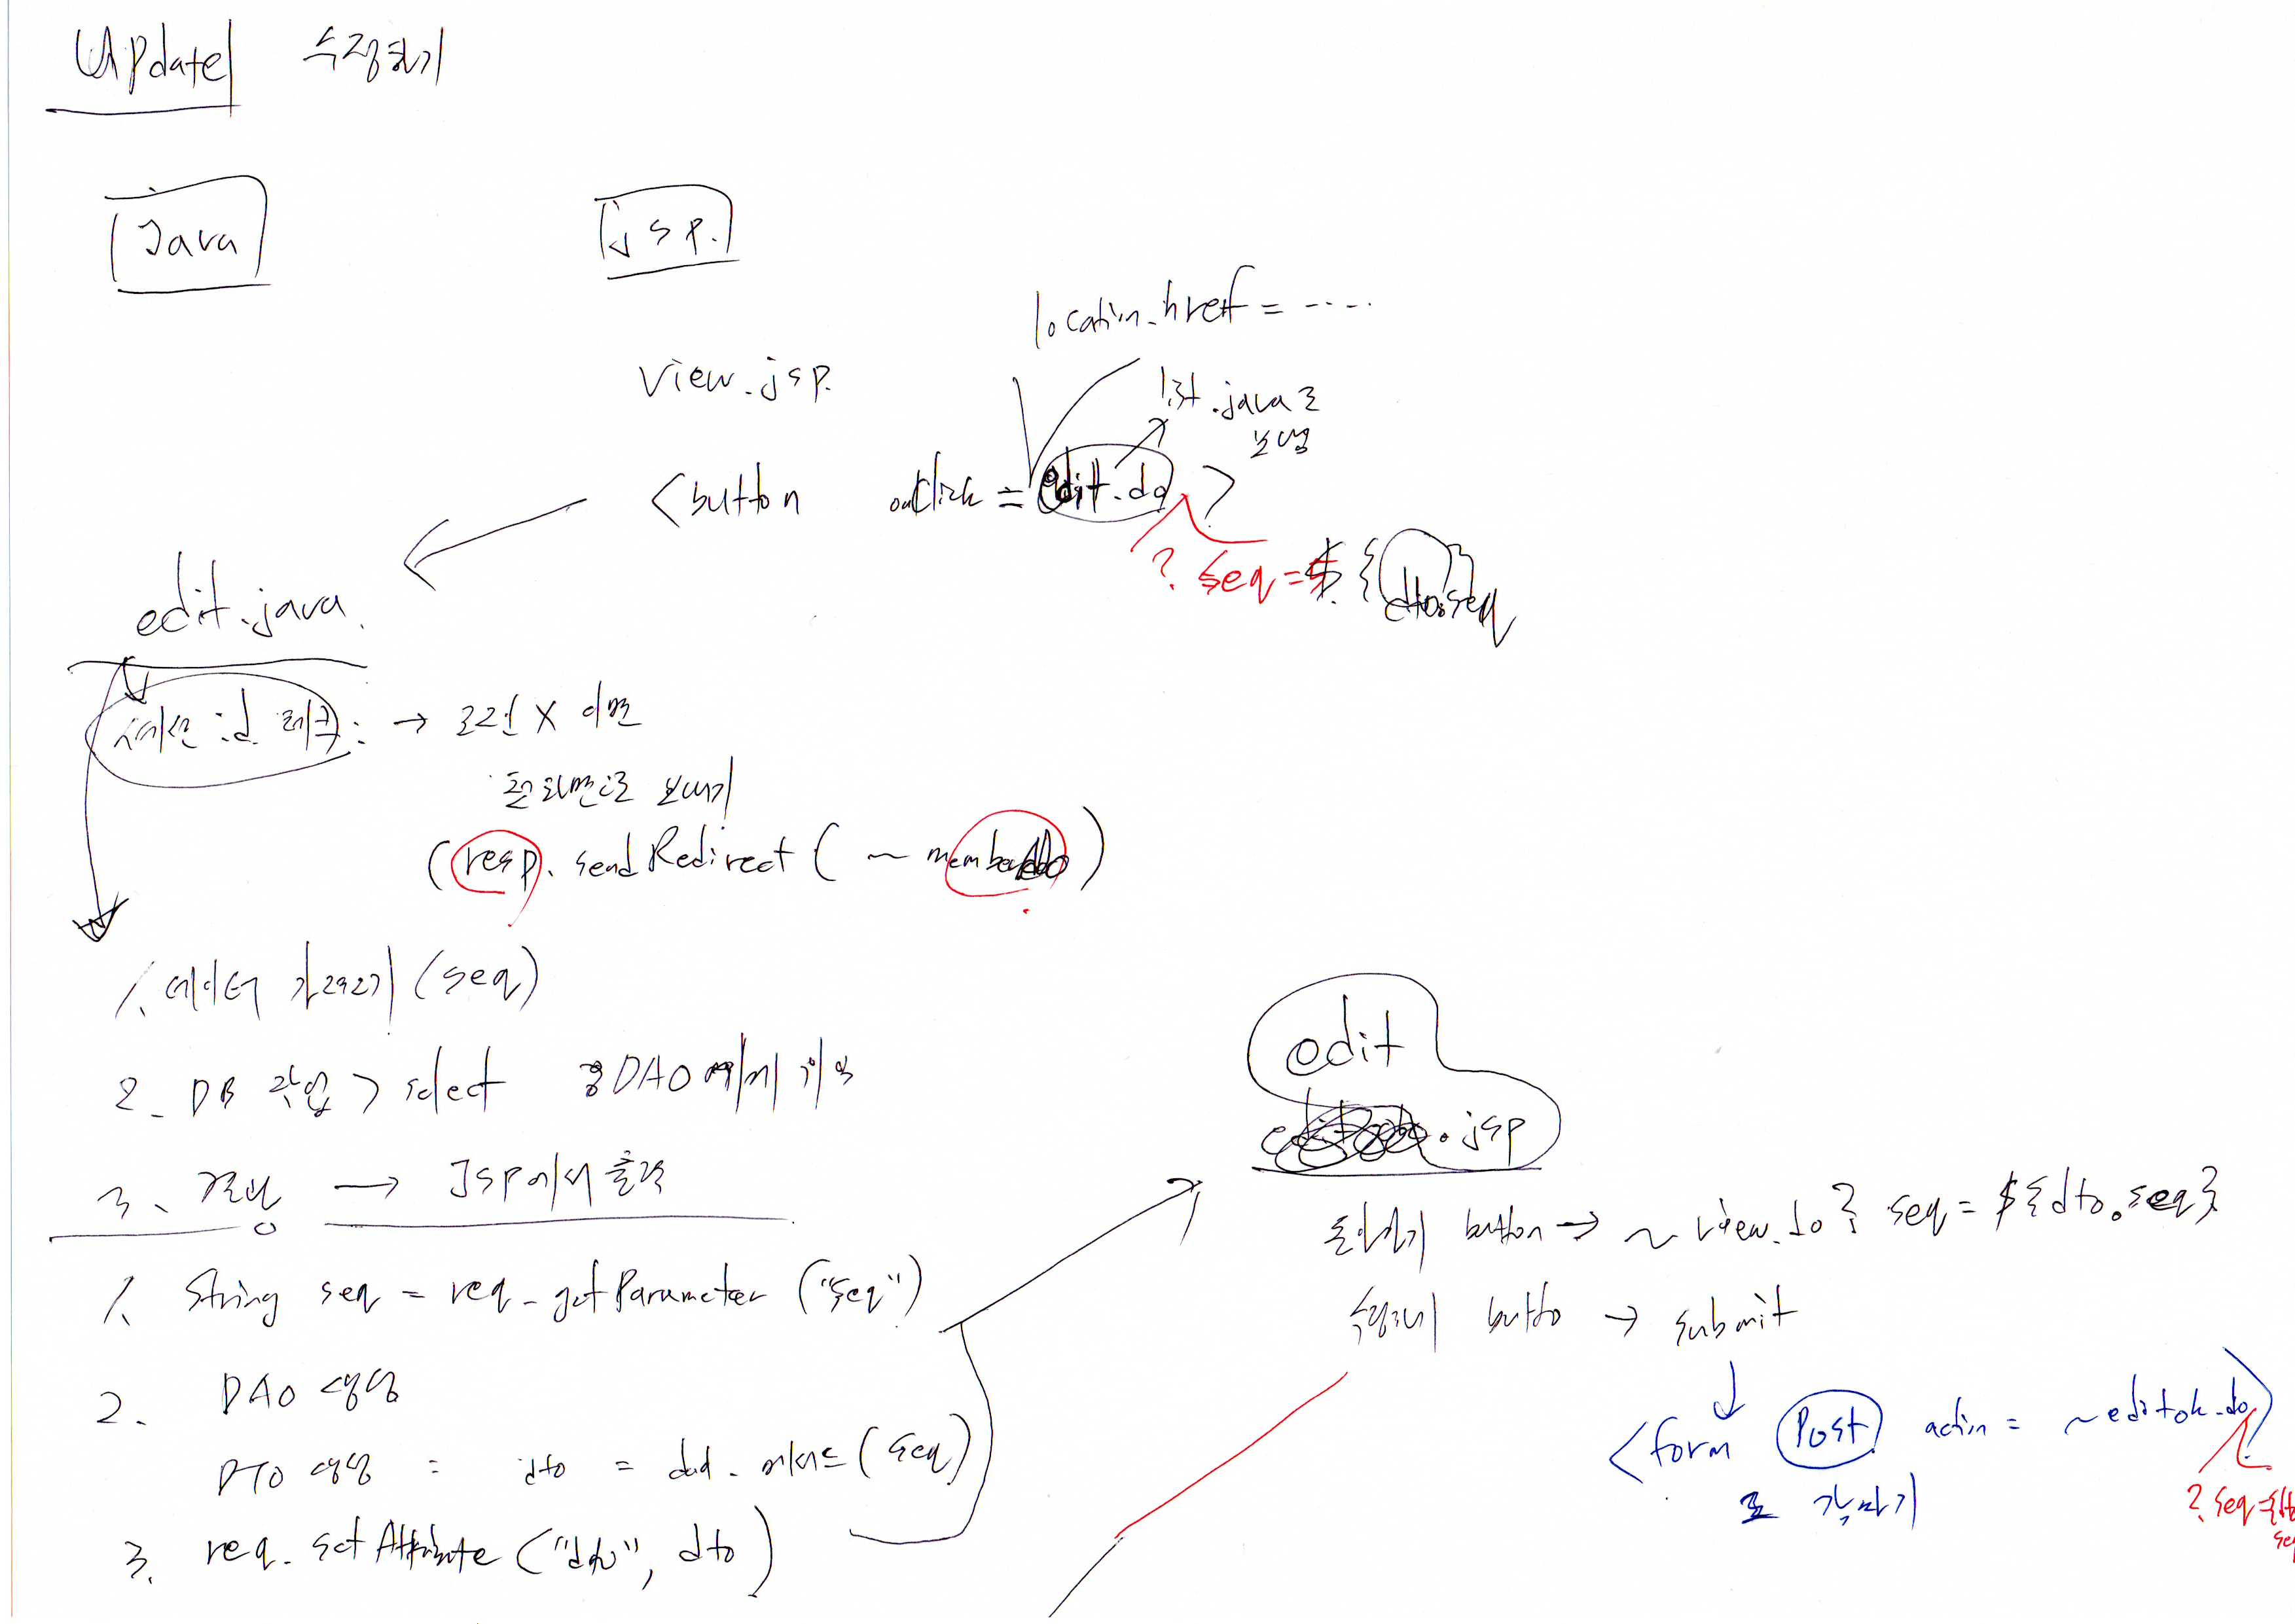 Update 수정하기
Java
jsp.
location.href = ....
view.jsp.
list.java로
보냄
<button onclick = edit.do >
? seq=$ {dto.seq}
edit.java.
세션 id 체크 : → 로그인 X 이면
홈화면으로 보내기
(resp. sendRedirect ( ~ member.do )
1. 데이터 가져오기 (seq)
2. DB 작업 > select DAO에서
3. 결과 → JSP에서 출력
1. String seq = req.getParameter ("seq")
2. DAO 생성
DTO 생성 = dto = dao. 메서드 (seq)
3. req. setAttribute ("dto", dto)
edit
.jsp
돌아가기 button → ~ view.do ? seq = ${dto.seq}
수정하기 butto → submit
<form Post action = ~editok.do>
로 감싸기
? seq=
seq